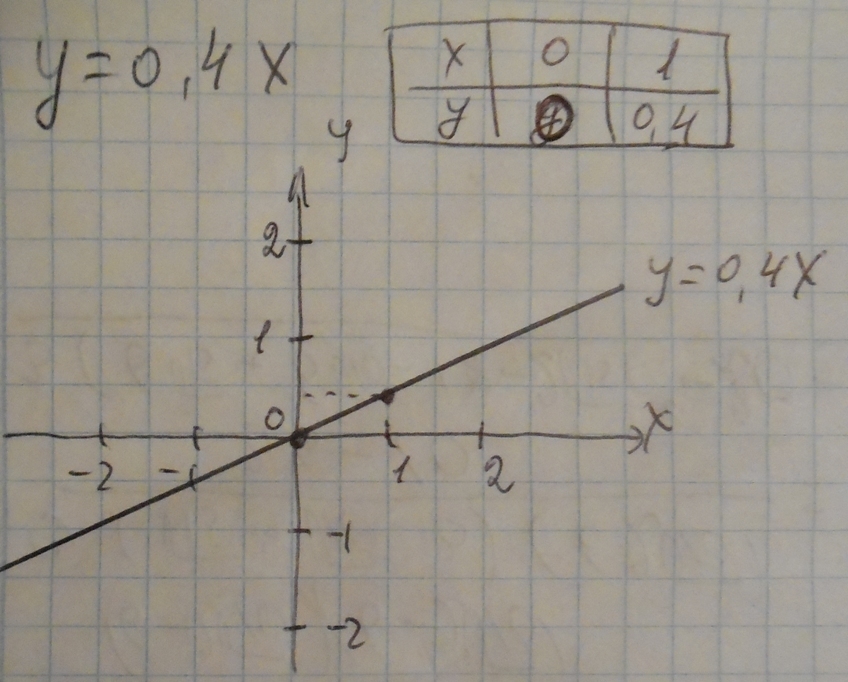 y=0,4x
x 0 1
y 0,4
y
2
1
y=0,4x
0
x
-2 -1 1 2
-1
-2